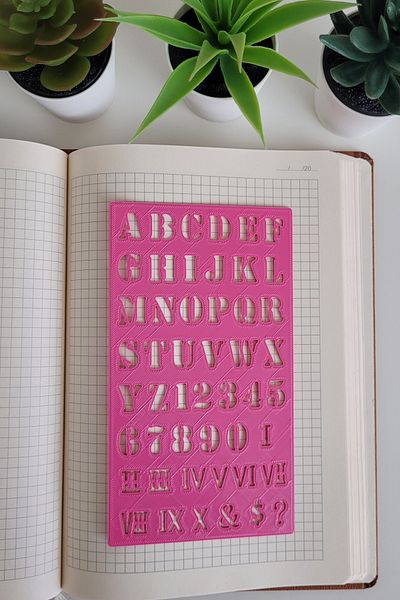 / /20
ABCDEF
GHIJKL
MNOPQR
STUVWX
YZ12345
67890 I
II III IV V VI VII
VIII IX X & $ ?